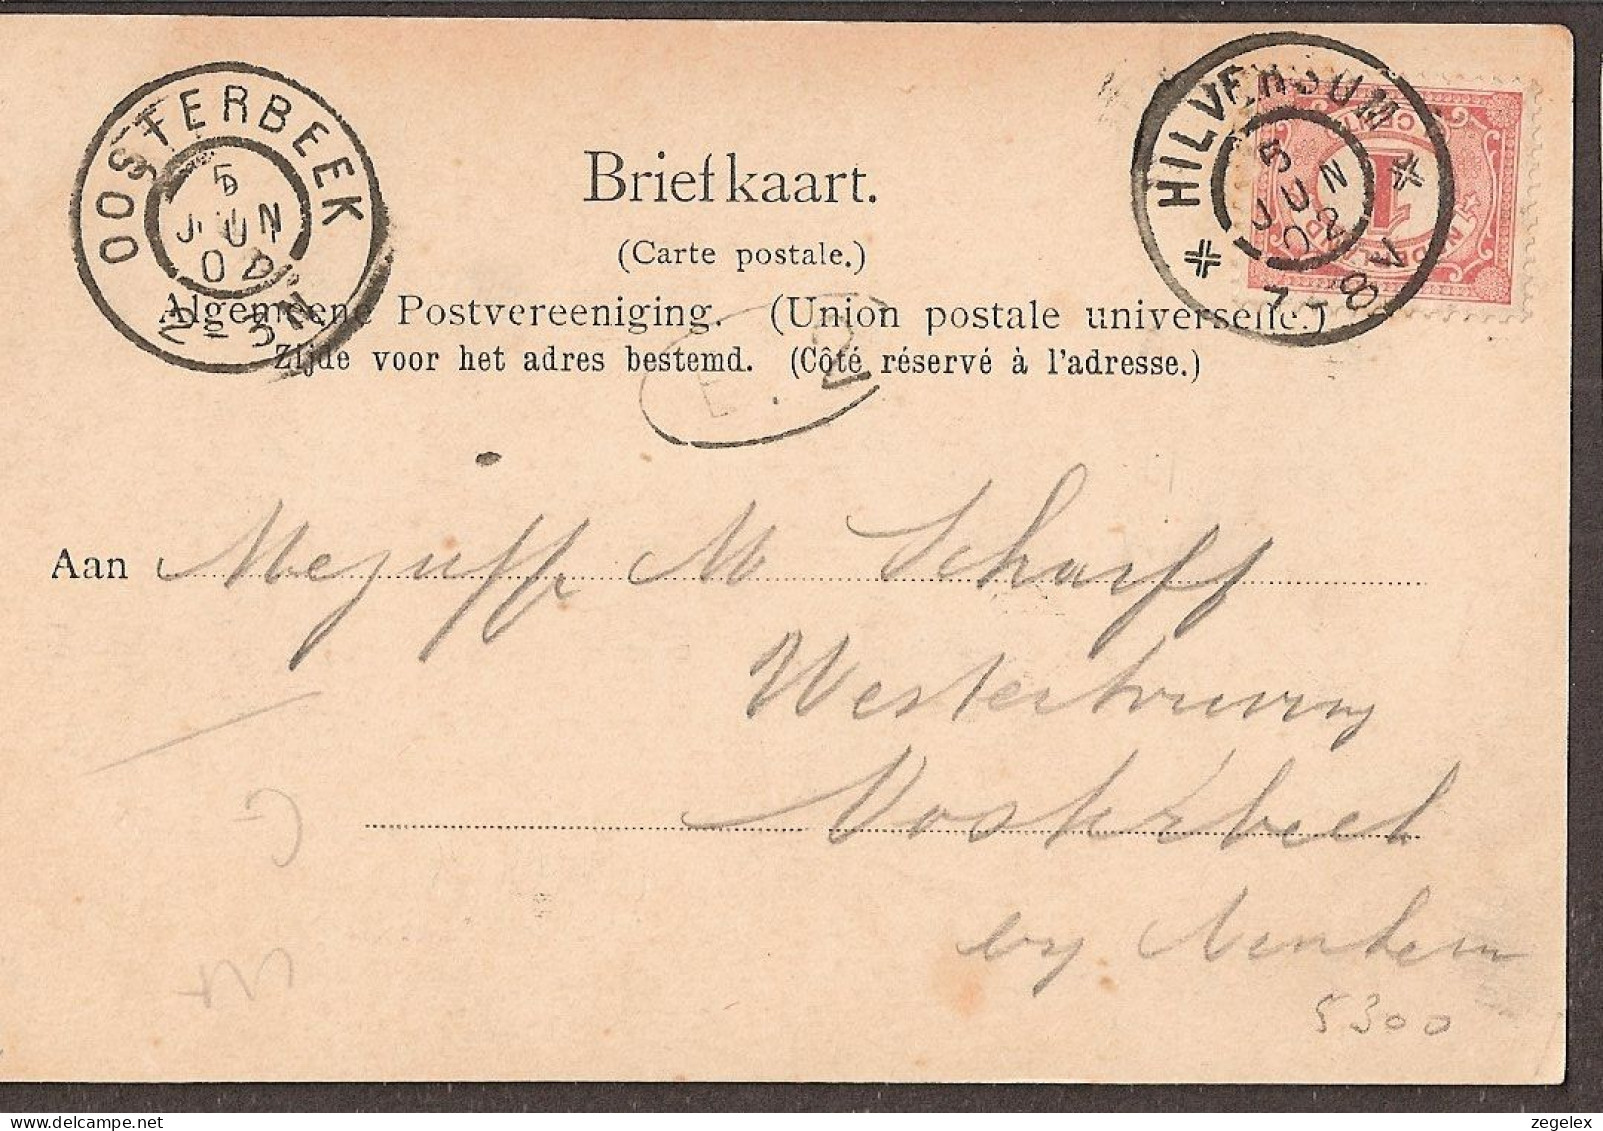 OOSTERBEEK
5
JUN
02
2-3N
HILVERSUM
5
JUN
02
7-8V
1 CENT
NEDERLAND
Briefkaart.
(Carte postale.)
Algemeene Postvereeniging. (Union postale universelle.)
Zijde voor het adres bestemd. (Côté réservé à l'adresse.)
E. 2
Aan Mejuff. M Scharff
Oosterbeek
by Arnhem
5300
G
zegelex